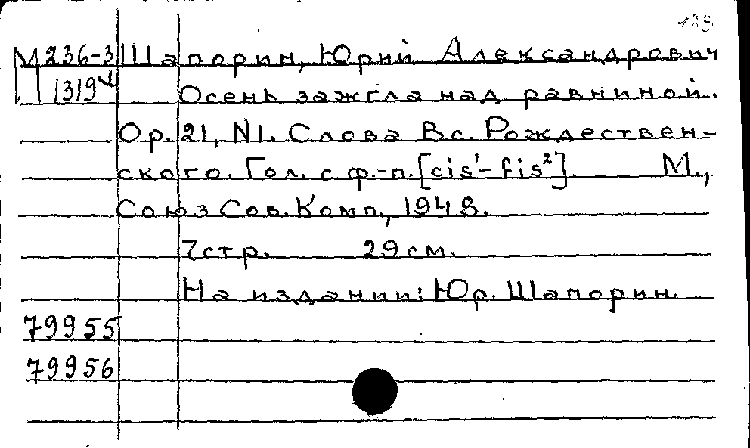 М236-3 Шапорин, Юрий Александрович
1319 Осень зажгла над равниной.
Op. 21, N1. Слова Вс. Рождествен-
ского. Гол. с ф.-п. [cis¹-fis²]. М.,
Союз Сов. Комп., 1948.
7 стр. 29 см.
На издании: Юр. Шапорин.
79955
79956